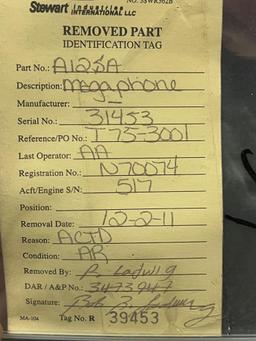 Stewart Industries
INTERNATIONAL LLC
REMOVED PART
IDENTIFICATION TAG
Part No.: A12SA
Description: megaphone
Manufacturer: -
Serial No.: 31453
Reference/PO No.: T75-3001
Last Operator: AA
Registration No.: N70074
Acft/Engine S/N: 517
Position:
Removal Date: 12-2-11
Reason: ACTD
Condition: AR
Removed By: R. Ladwig
DAR / A&P No.: 3473947
Signature:
MA-104 Tag No. R 39453